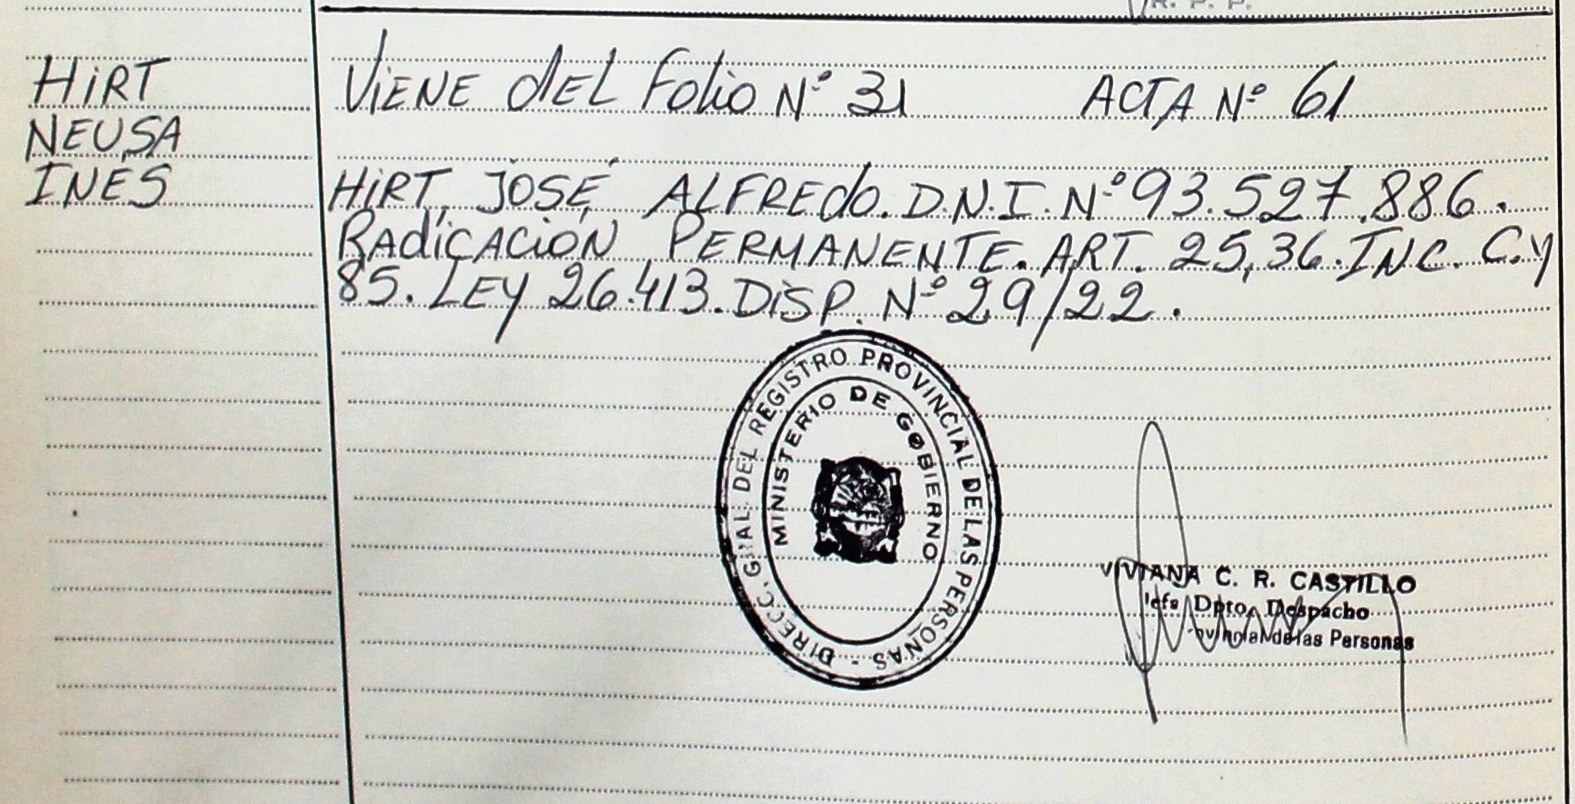 R. P. P.
HiRT
NEUSA
INÉS
ViENE dEL Folio Nº 31 ACTA Nº 61
HiRT, JOSÉ ALFREdo. D.N.I. Nº 93.527.886.
RAdiCACIÓN PERMANENTE. ART. 25, 36. INC. C. y
85. LEY 26.413. DiSP. Nº 29/22.
DIRECC. GRAL. DEL REGISTRO PROVINCIAL DE LAS PERSONAS -
MINISTERIO DE GOBIERNO
VIVIANA C. R. CASTILLO
Jefa Dpto. Despacho
de las Personas